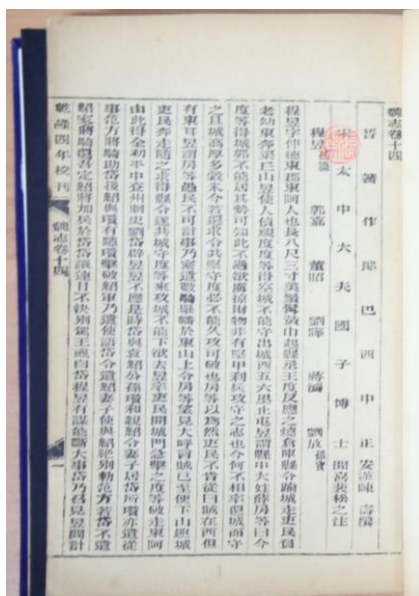 魏志卷十四
晉著作郎巴西中正安漢陳壽撰
宋太中大夫國子博士聞喜裴松之注
程昱孫曉 郭嘉 董昭 劉曄 蔣濟 劉放孫資
程昱字仲德東郡東阿人也長八尺三寸美鬚髯黃巾起縣丞王度反應之燒倉庫縣令踰城走吏民負
老幼東奔渠丘山昱使人偵視度度等得空城不能守出城西五六里止屯昱謂縣中大姓薛房等曰今
度等得城郭不能居其勢可知此不過欲虜掠財物非有堅甲利兵攻守之志也今何不相率還城而守
之且城高厚多穀米今若還求令共堅守度必不能久攻可破也房等以為然吏民不肯從曰賊在西但
有東耳昱謂房等愚民不可計事乃密遣數騎舉幡於東山上令房等望見大呼言賊已至便下山趣城
吏民奔走隨之求得縣令遂共城守度等來攻城不能下欲去昱率吏民開城門急擊之度等破走東阿
由此得全初平中兗州刺史劉岱辟昱昱不應是時岱與袁紹公孫瓚和親紹令妻子居岱所瓚亦遣從
事范方將騎助岱後紹與瓚有隙瓚擊破紹軍乃遣使語岱令遣紹妻子使與紹絕別勅范方若岱不遣
紹家將騎還吾定紹將加兵於岱岱議連日不決別駕王彧白岱程昱有謀能斷大事岱乃召見昱問計
乾隆四年校刊 魏志卷十四 一